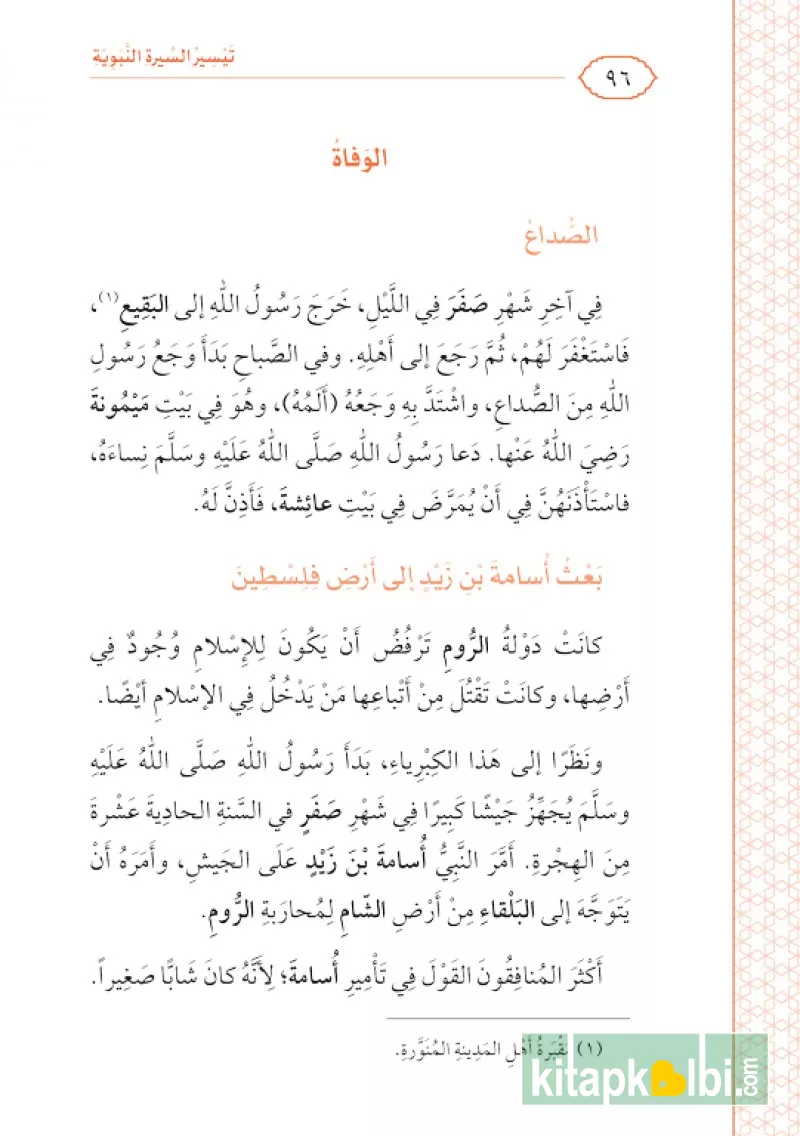 تَيْسِيرُ السِّيرةِ النَّبَوِيَّةِ
٩٦
الوَفاةُ
الصُّداعُ
فِي آخِرِ شَهْرِ صَفَرَ فِي اللَّيْلِ، خَرَجَ رَسُولُ اللهِ إلى البَقِيعِ(١)،
فَاسْتَغْفَرَ لَهُمْ، ثُمَّ رَجَعَ إلى أَهْلِهِ. وفي الصَّباحِ بَدَأَ وَجَعُ رَسُولِ
اللهِ مِنَ الصُّداعِ، واشْتَدَّ بِهِ وَجَعُهُ (أَلَمُهُ)، وهُوَ فِي بَيْتِ مَيْمُونةَ
رَضِيَ اللهُ عَنْها. دَعا رَسُولُ اللهِ صَلَّى اللهُ عَلَيْهِ وسَلَّمَ نِساءَهُ،
فاسْتَأْذَنَهُنَّ فِي أَنْ يُمَرَّضَ فِي بَيْتِ عائِشةَ، فَأَذِنَّ لَهُ.
بَعْثُ أُسامةَ بْنِ زَيْدٍ إلى أَرْضِ فِلِسْطِينَ
كانَتْ دَوْلةُ الرُّومِ تَرْفُضُ أَنْ يَكُونَ لِلإِسْلامِ وُجُودٌ فِي
أَرْضِها، وكانَتْ تَقْتُلَ مِنْ أَتْباعِها مَنْ يَدْخُلُ فِي الإسْلامِ أيْضًا.
ونَظَرًا إلى هَذا الكِبْرِياءِ، بَدَأَ رَسُولُ اللهِ صَلَّى اللهُ عَلَيْهِ
وسَلَّمَ يُجَهِّزُ جَيْشًا كَبِيرًا فِي شَهْرِ صَفَرٍ في السَّنةِ الحادِيةَ عَشْرةَ
مِنَ الهِجْرةِ. أَمَّرَ النَّبِيُّ أُسامةَ بْنَ زَيْدٍ عَلَى الجَيشِ، وأَمَرَهُ أَنْ
يَتَوَجَّهَ إلى البَلْقاءِ مِنْ أَرْضِ الشّامِ لِمُحارَبةِ الرُّومِ.
أَكْثَرَ المُنافِقُونَ القَوْلَ فِي تَأْمِيرِ أُسامةَ؛ لِأَنَّهُ كانَ شابًّا صَغِيراً.
(١) مَقْبَرةُ أَهْلِ المَدِينةِ المُنَوَّرةِ.
kitapkalbi.com